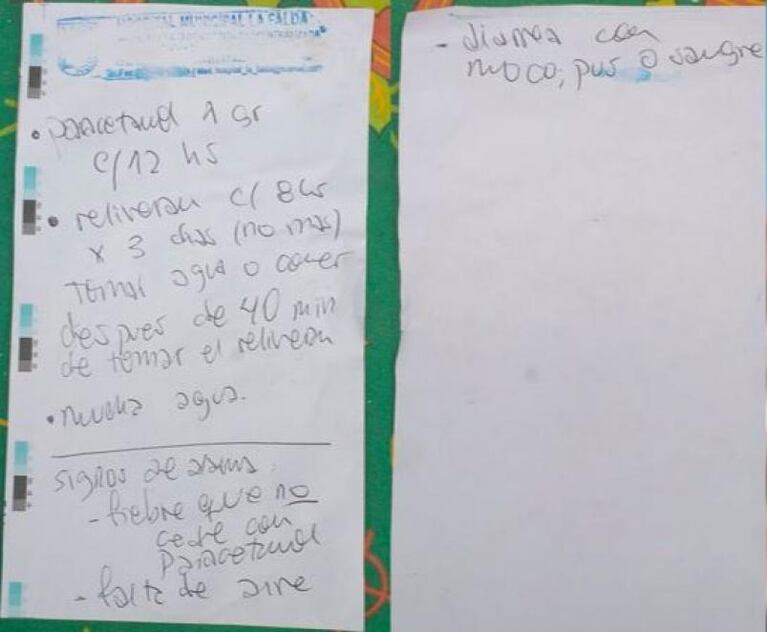 HOSPITAL MUNICIPAL LA FALDA
• paracetamol 1 gr
c/12 hs
• reliveran c/ 8 hs
x 3 dias (no mas)
tomar agua o comer
despues de 40 min
de tomar el reliveran
• mucha agua.
signos de alarma:
- fiebre que no
cede con
paracetamol
- falta de aire
- diarrea con
moco, pus o sangre